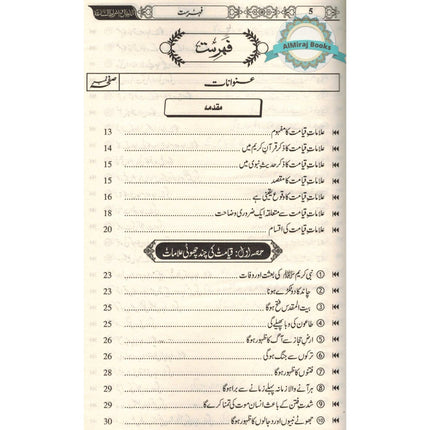 5 فہرست
AlMiraj Books
فہرست
عنوانات صفحہ نمبر
مقدمہ
علاماتِ قیامت کا مفہوم 13
علاماتِ قیامت کا ذکر قرآن کریم میں 14
علاماتِ قیامت کا ذکر حدیث نبوی میں 15
علاماتِ قیامت کا مقصد 15
قیامت کا وقوع یقینی ہے 16
علاماتِ قیامت سے متعلقہ ایک ضروری وضاحت 18
علاماتِ قیامت کی اقسام 20
حصہ اوّل: قیامت کی چند چھوٹی علامات 23
① نبی کریم ﷺ کی بعثت اور وفات 23
② چاند کا دو ٹکڑے ہونا 23
③ بیت المقدس فتح ہوگا 25
④ طاعون کی وبا پھیلے گی 25
⑤ ارضِ حجاز سے آگ کا ظہور ہوگا 26
⑥ ترکوں سے جنگ ہوگی 26
⑦ فتنوں کا ظہور ہوگا 26
⑧ ہر آنے والا زمانہ پہلے زمانے سے برا ہوگا 28
⑨ شدتِ فتن کے باعث انسان موت کی تمنا کرے گا 29
⑩ جھوٹے نبیوں اور دجالوں کا ظہور ہوگا 30